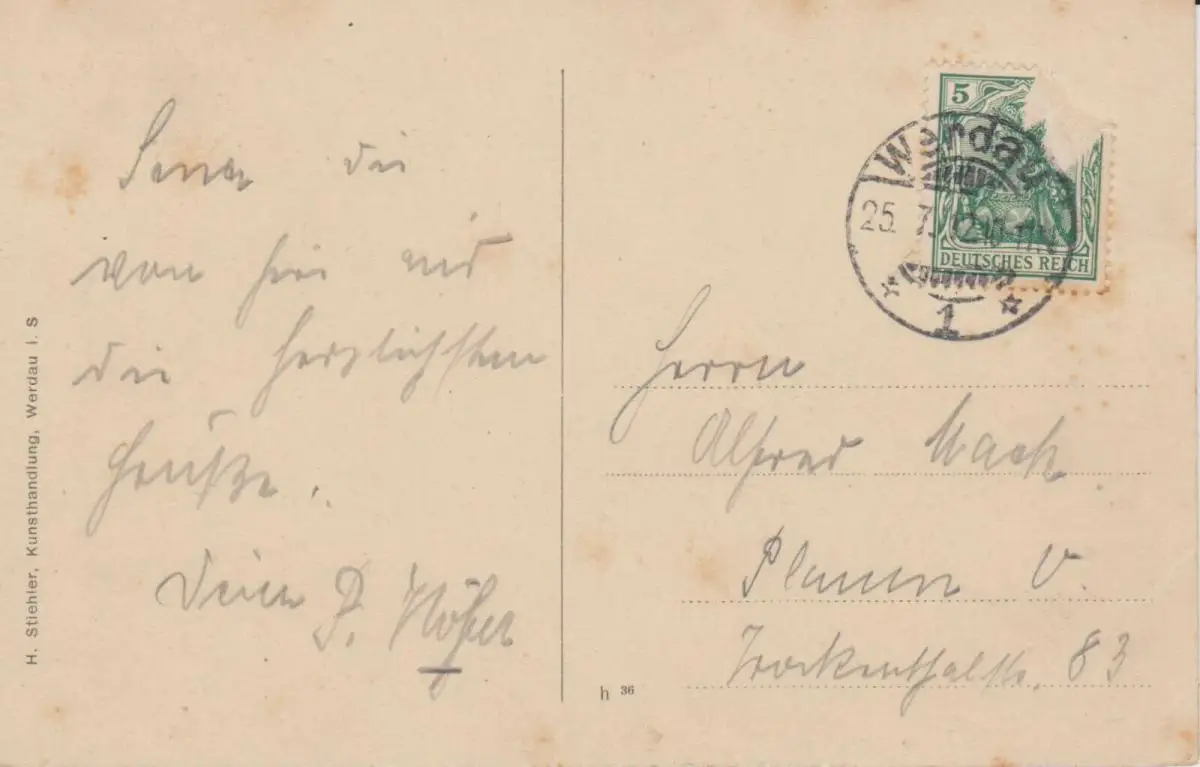 Sende dir
von hier aus
die herzlichsten
Grüße.
Dein P.
H. Stiehler, Kunsthandlung, Werdau i. S
5
DEUTSCHES REICH
Werdau
25. 7. 12
1
Herrn
Alfred Mack.
Plauen V.
Trockenthalstr. 83
h 36